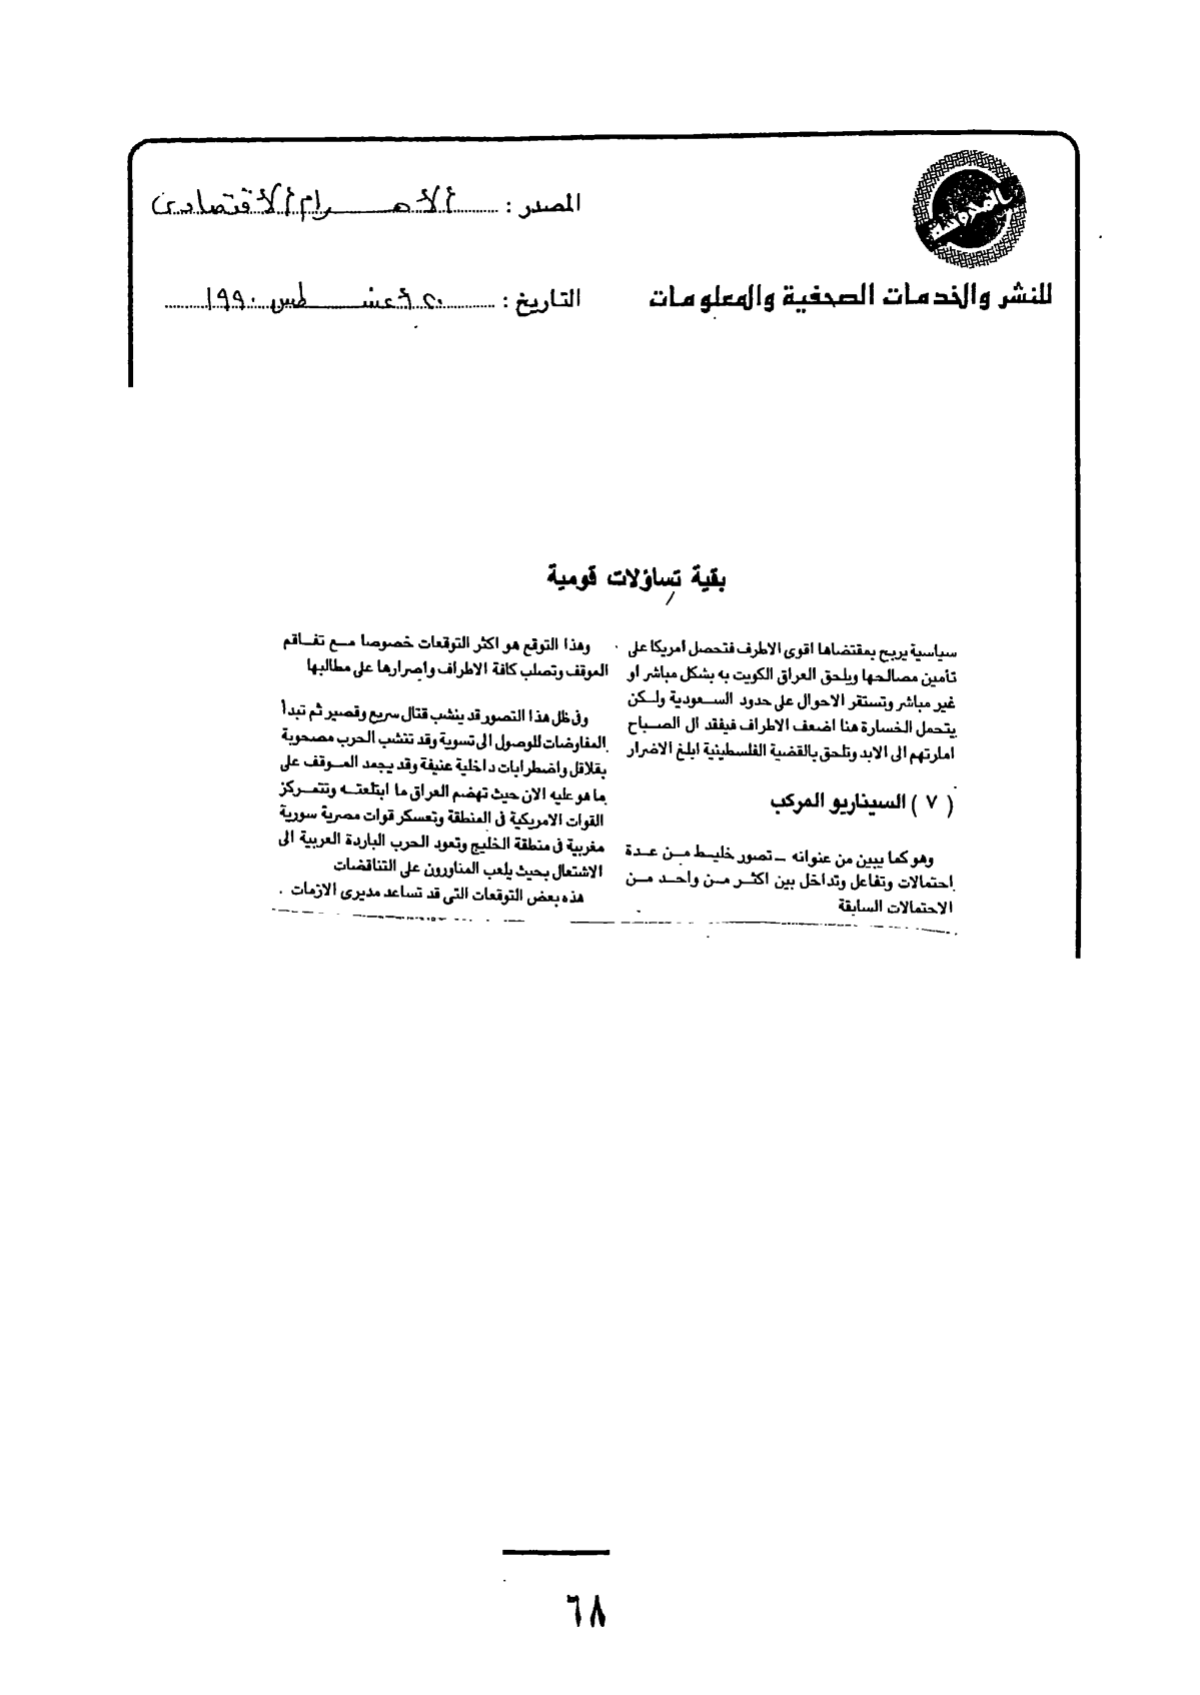 المصدر : الأهـــرام الاقتصادى
للنشر والخدمات الصحفية والمعلومات
التاريخ : ٢٠ أغسـطس ١٩٩٠
بقية تساؤلات قومية
سياسية يربح بمقتضاها اقوى الاطرف فتحصل امريكا على
تأمين مصالحها ويلحق العراق الكويت به بشكل مباشر او
غير مباشر وتستقر الاحوال على حدود الســعودية ولـكن
يتحمل الخسارة هنا اضعف الاطراف فيفقد ال الصــباح
امارتهم الى الابد وتلحق بالقضية الفلسطينية ابلغ الاضرار
( ٧ ) السيناريو المركب
وهو كما يبين من عنوانه ـ تصور خليـط مـن عـدة
احتمالات وتفاعل وتداخل بين اكثـر مـن واحـد مـن
الاحتمالات السابقة
وهذا التوقع هو اكثر التوقعات خصوصا مـع تفـاقم
الموقف وتصلب كافة الاطراف واصرارها على مطالبها
وفى ظل هذا التصور قد ينشب قتال سريع وقصير ثم تبدأ
المفاوضات للوصول الى تسوية وقد تنشب الحرب مصحوبة
بقلاقل واضطرابات داخلية عنيفة وقد يجمد المـوقف على
ما هو عليه الان حيث تهضم العراق ما ابتلعتـه وتتمـركز
القوات الامريكية فى المنطقة وتعسكر قوات مصرية سورية
مغربية فى منطقة الخليج وتعود الحرب الباردة العربية الى
الاشتعال بحيث يلعب المناورون على التناقضات
هذه بعض التوقعات التى قد تساعد مديرى الازمات .
٦٨